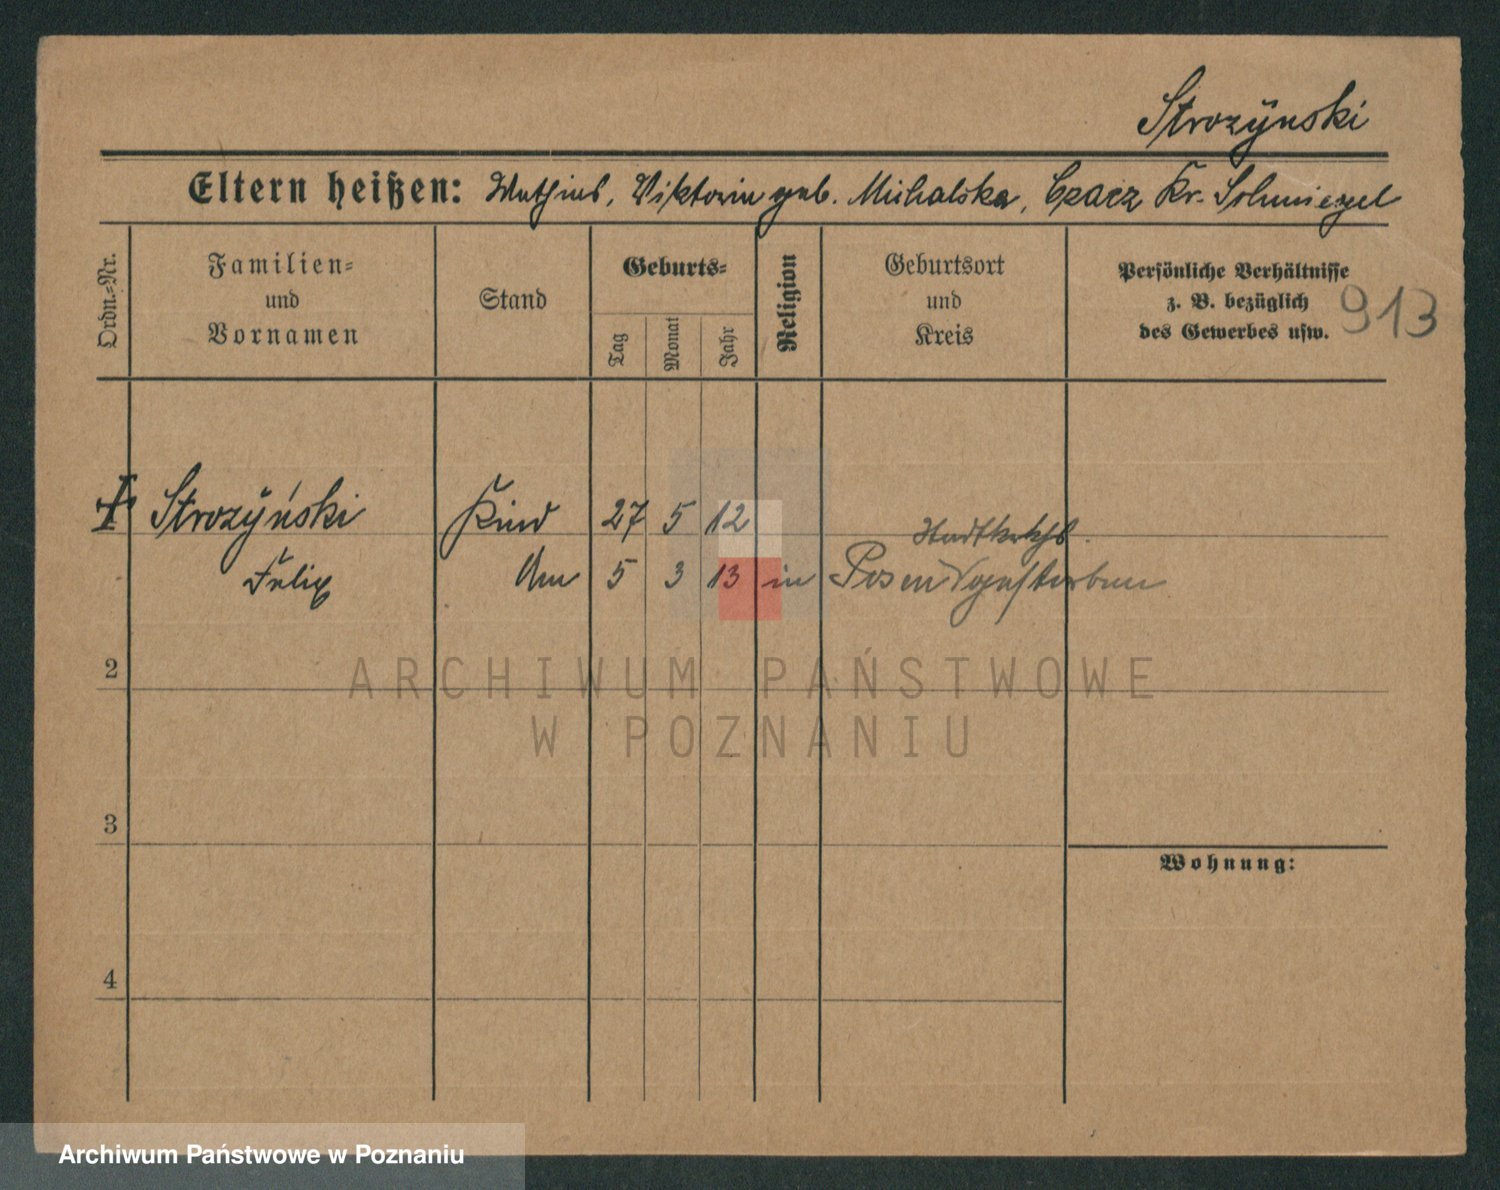 Strozÿnski
Eltern heißen: Mathias, Viktoria geb. Michalska, Czacz Kr. Schmiegel
Ordn.-Nr.
Familien-
und
Vornamen
Stand
Geburts-
Tag
Monat
Jahr
Religion
Geburtsort
und
Kreis
Persönliche Verhältnisse
z. B. bezüglich
des Gewerbes usw.
913
Strozÿński Kind 27 5 12
Stadtkrkhs.
Felix Am 5 3 13 in Posen gestorben
2
ARCHIWUM PAŃSTWOWE
W POZNANIU
3
Wohnung:
4
Archiwum Państwowe w Poznaniu